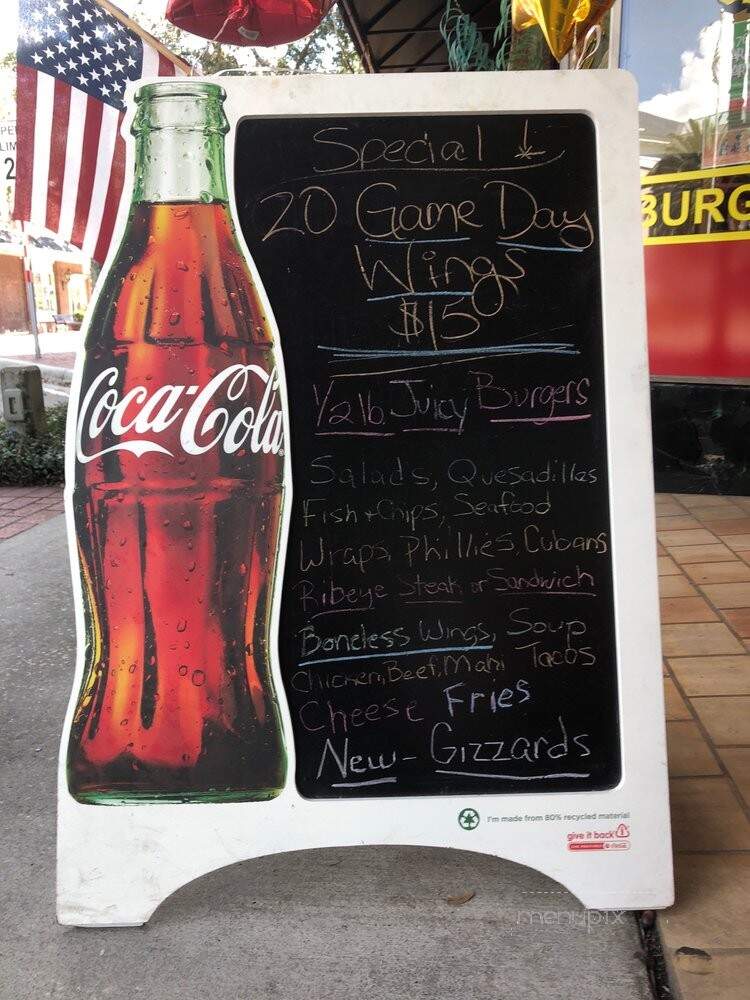 PE
LIM
2
BURG
Special ↓
20 Game Day
Wings
$15
1/2 lb. Juicy Burgers
Salads, Quesadillas
Fish + Chips, Seafood
Wraps, Phillies, Cubans
Ribeye Steak or Sandwich
Boneless Wings, Soup
Chicken, Beef, Mahi Tacos
Cheese Fries
New - Gizzards
Coca-Cola
I'm made from 80% recycled material
give it back
menupix